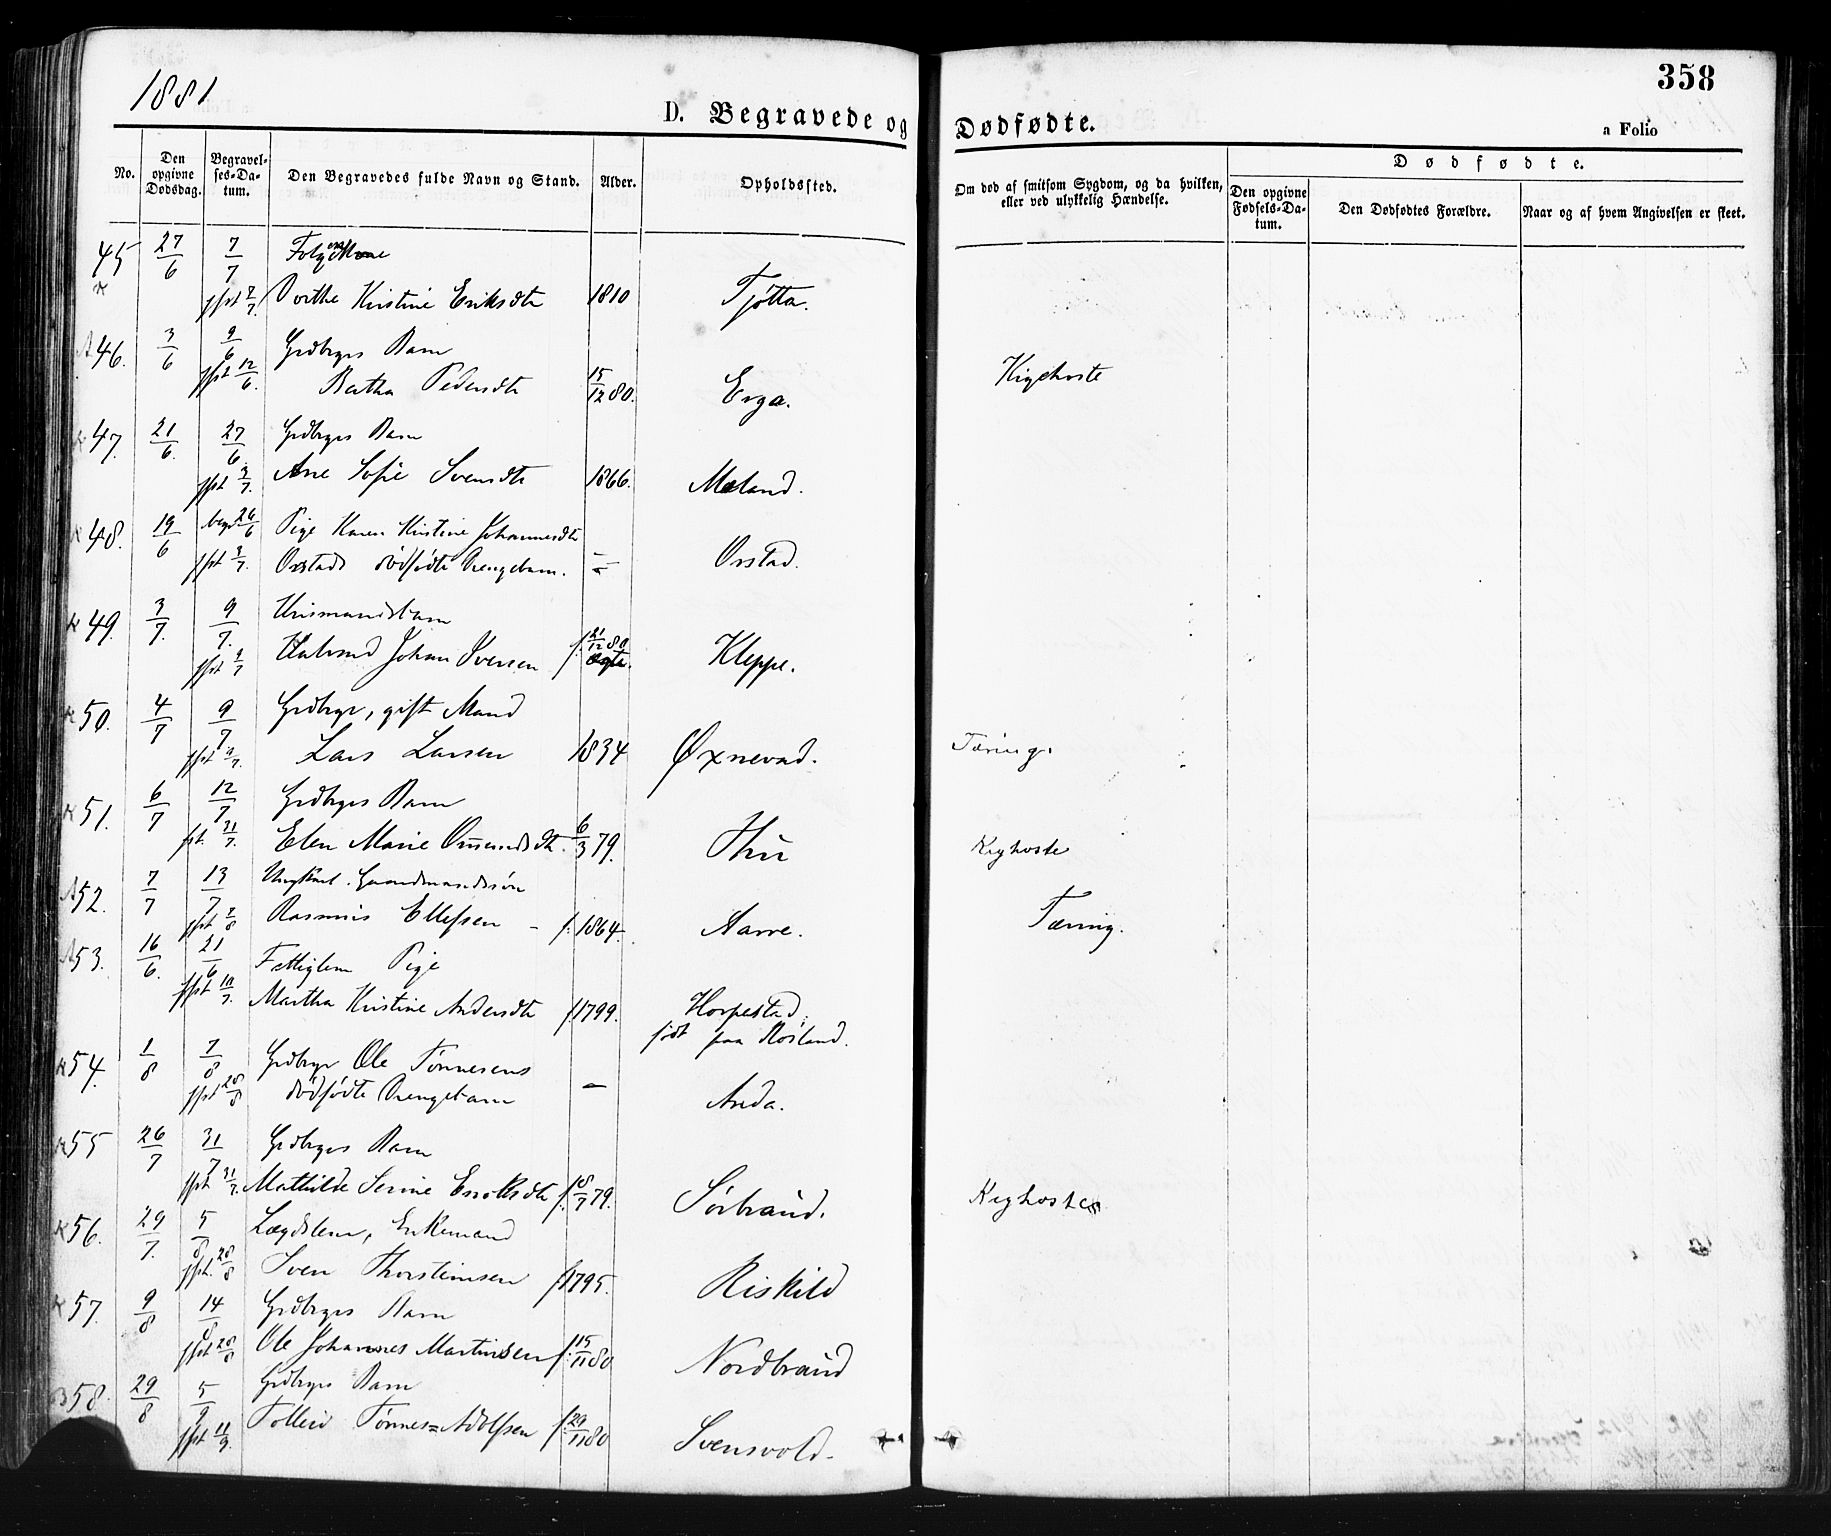 1881
358
D. Begravede og Dødfødte.
a Folio
No.
Den opgivne Dødsdag.
Begravelses-Datum.
Den Begravedes fulde Navn og Stand.
Alder.
Opholdssted.
Om død af smitsom Sygdom, og da hvilken, eller ved ulykkelig Hændelse.
Dødfødte.
Den opgivne Fødsels-Datum.
Den Dødfødtes Forældre.
Naar og af hvem Angivelsen er skeet.
45 27/6 7/7
jfpt 7/7. Dorthe Kristine Eriksdtr 1810 Tjøtta.
46. 3/6 9/6 Grdbrgrs Barn
jfpt 12/6. Bertha Pedersdtr 15/12 80. Erga. Kighoste
47. 21/6. 27/6. Grdbrgrs Barn
jfpt 3/7. Ane Sofie Svensdtr 1866. Mæland.
48. 19/6 begr. 26/6 Pige Karen Kristine Johannesdtr
jfpt 3/7. Orstads dødfødte Drengebarn. – Orstad.
49. 3/7. 9/7. Husmandsbarn
jfpt 9/7 Halvard Johan Iversen f. 21/12 80 ægte. Kleppe.
50. 4/7 9/7 Grdbrgr, gift Mand
Lars Larsen 1834 Øxnevad. Tæring.
51. 6/7 12/7 Grdbrgrs Barn
jpt. 31/7. Elen Marie Ommundsdtr. 6/3 79. Hu Kighoste
52. 7/7 13/7 Ungkarl. Gaardmandssøn
jfpt 7/8 Rasmus Ellefsen – f. 1864. Aarre. Tæring.
53. 16/6. 21/6 Fattiglem Pige
jfpt 10/7. Martha Kristine Andersdtr f. 1799. Horpestad,
født paa Rosland.
54. 1/8 7/8 Grdbrgr Ole Tønnesens
jfpt 28/8 dødfødte Drengebarn – Anda.
55 26/7 31/7 Grdbrgrs Barn
jfpt 31/7. Mathilde Serine Enoksdtr f. 18/7 79. Sørbraud. Kighoste
56. 29/7. 5/8 Lægdslem, Enkemand
jfpt. 28/8 Sven Thorsteinsen f. 1795. Riskild
57. 9/8 14/8 Grdbrgrs Barn
jfpt 28/8 Ole Johannes Martinsen f. 15/11 80 Nordbraud
58. 29/8 5/9 Grdbrgrs Barn
jfpt 11/9. Tollew Tønnes Adolfsen f. 29/11 80 Svensvold.